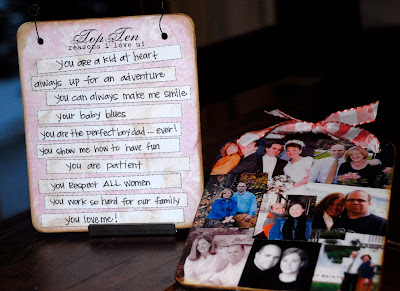 Top Ten
reasons i love u!
you are a kid at heart
always up for an adventure
you can always make me smile
your baby blues
you are the perfect boy dad ... ever!
you show me how to have fun
you are patient
you respect ALL women
you work so hard for our family
you love me!